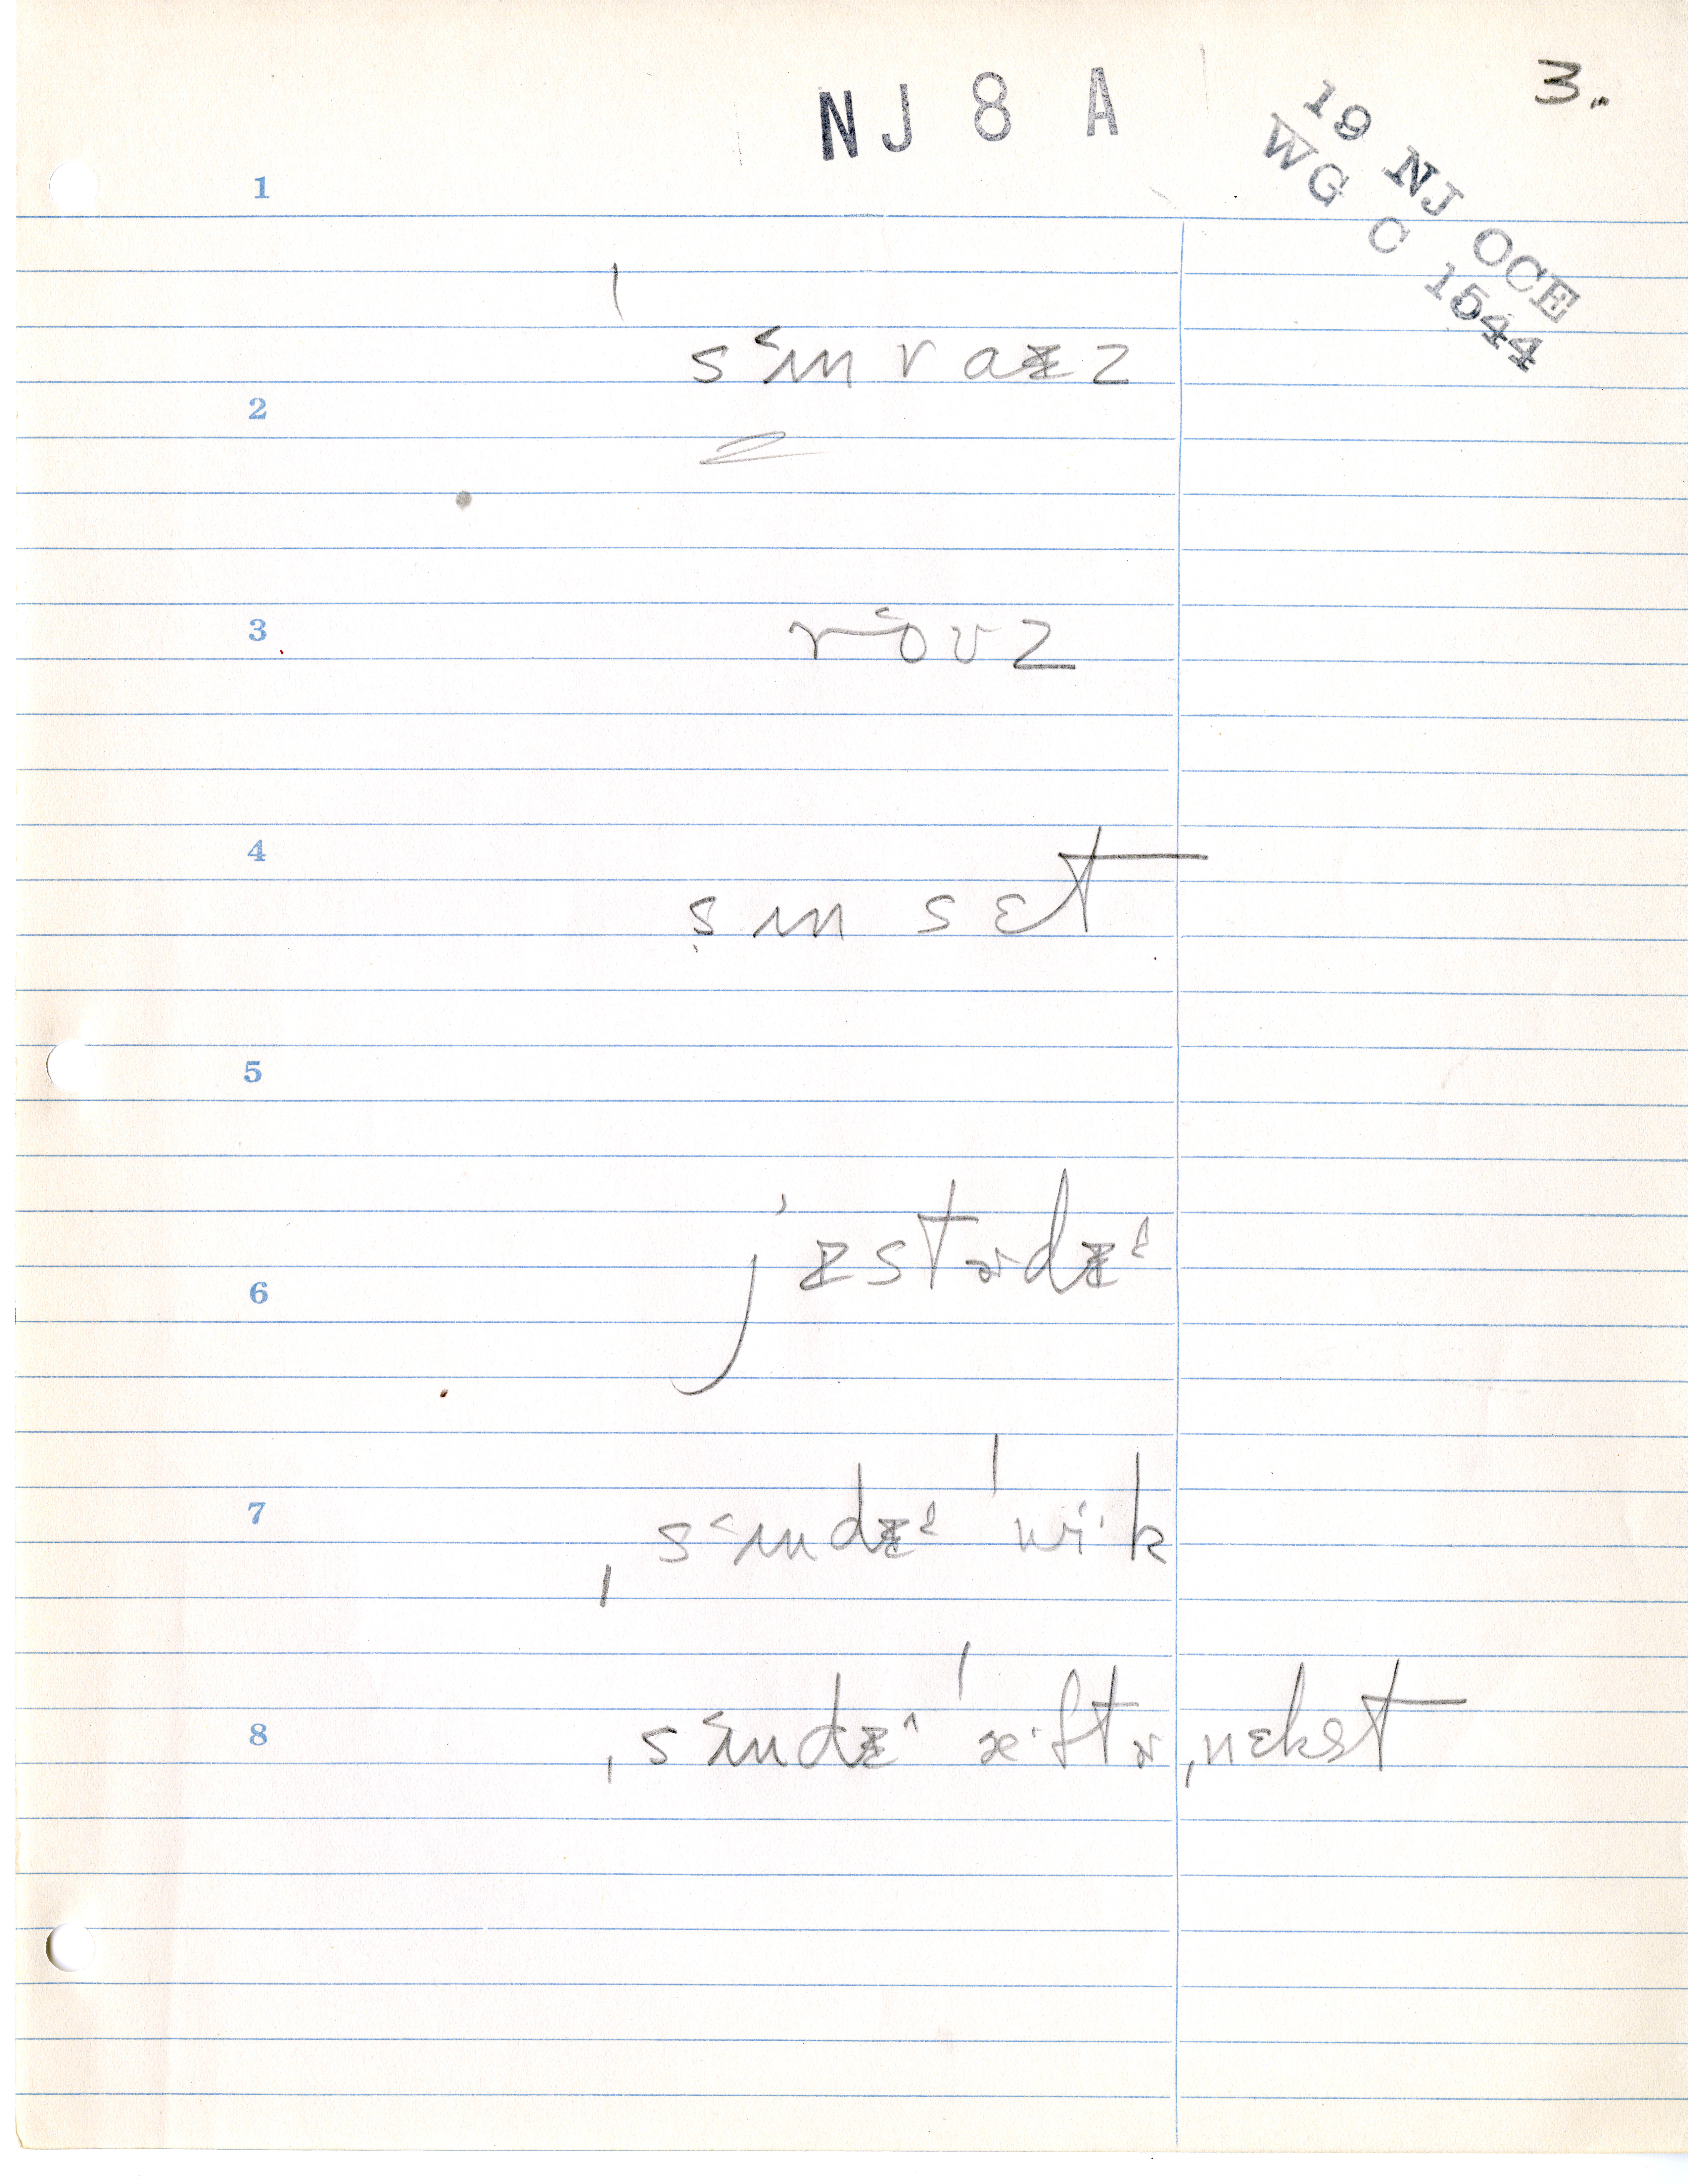 NJ 8 A
3.
19 NJ OCE
WG C 1544
1
ˈsʌ˂nraᵻz
2
3
ro˂ʊz
4
sʌnsɛt
5
jᵻstɚdᵻ
6
7
ˌsʌ˂ndᵻ ˈwi·k
8
ˌsʌ˂ndᵻ ˈæftɚ ˌnɛkst